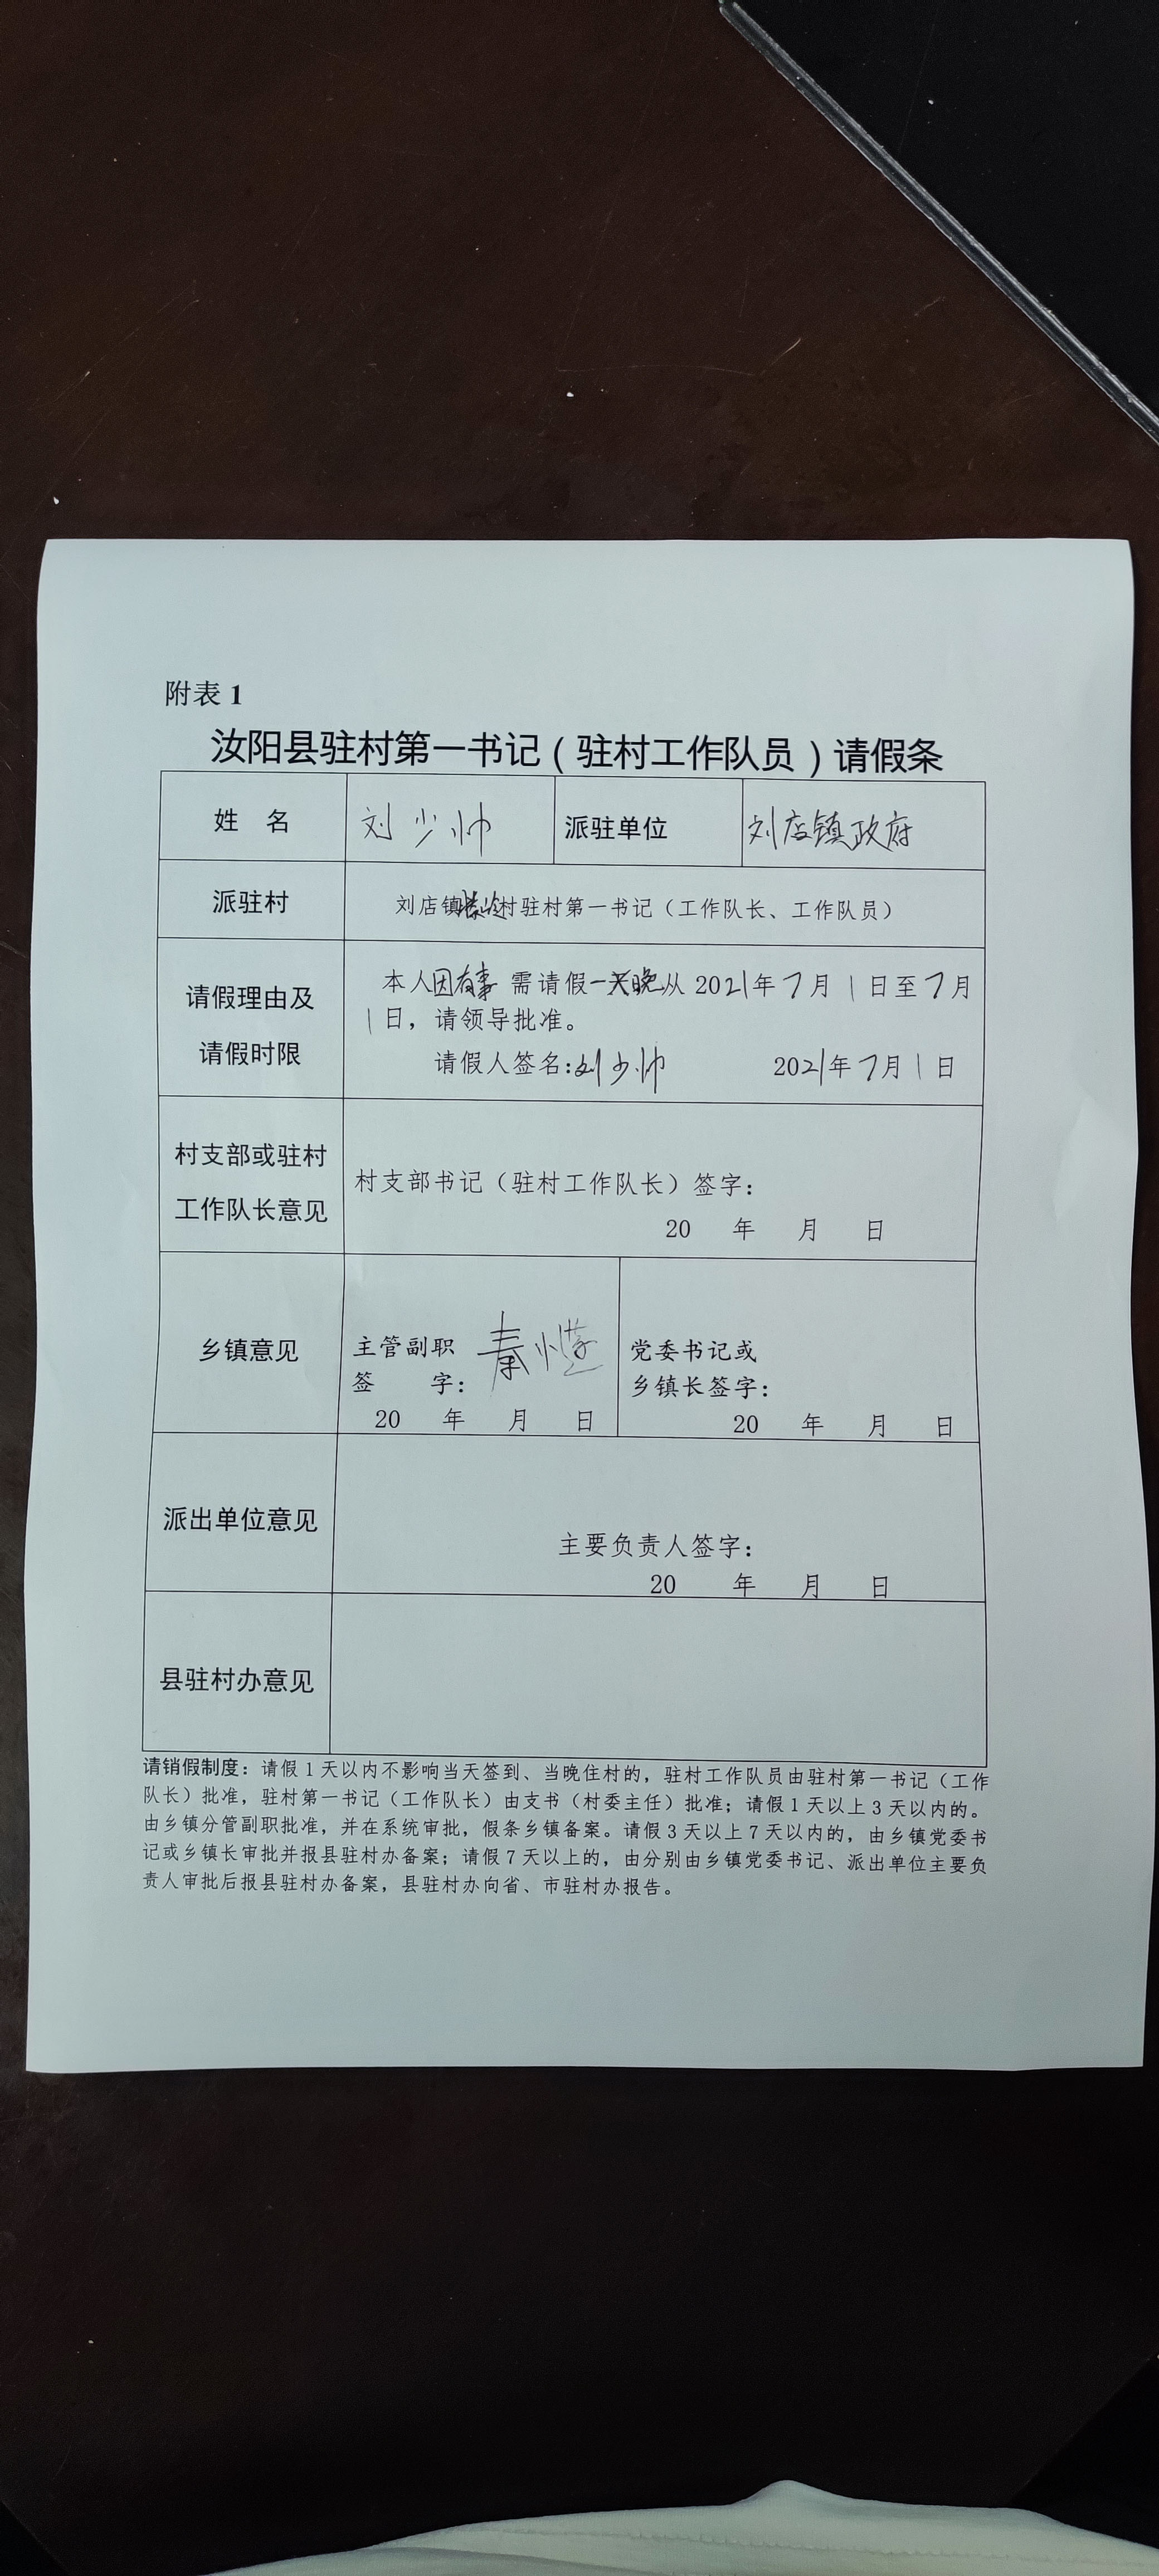 附表 1
汝阳县驻村第一书记（驻村工作队员）请假条
姓 名 刘少帅 派驻单位 刘店镇政府
派驻村 刘店镇 村驻村第一书记（工作队长、工作队员）
请假理由及
请假时限
本人因有事 需请假一天晚从 2021年 7月 1日至7月
1日，请领导批准。
请假人签名:刘少帅 2021年7月1日
村支部或驻村
工作队长意见
村支部书记（驻村工作队长）签字：
20 年 月 日
乡镇意见
主管副职
签 字： 秦
20 年 月 日
党委书记或
乡镇长签字：
20 年 月 日
派出单位意见
主要负责人签字：
20 年 月 日
县驻村办意见
请销假制度：请假 1 天以内不影响当天签到、当晚住村的，驻村工作队员由驻村第一书记（工作
队长）批准，驻村第一书记（工作队长）由支书（村委主任）批准；请假 1 天以上 3 天以内的。
由乡镇分管副职批准，并在系统审批，假条乡镇备案。请假 3 天以上 7 天以内的，由乡镇党委书
记或乡镇长审批并报县驻村办备案；请假 7 天以上的，由分别由乡镇党委书记、派出单位主要负
责人审批后报县驻村办备案，县驻村办向省、市驻村办报告。